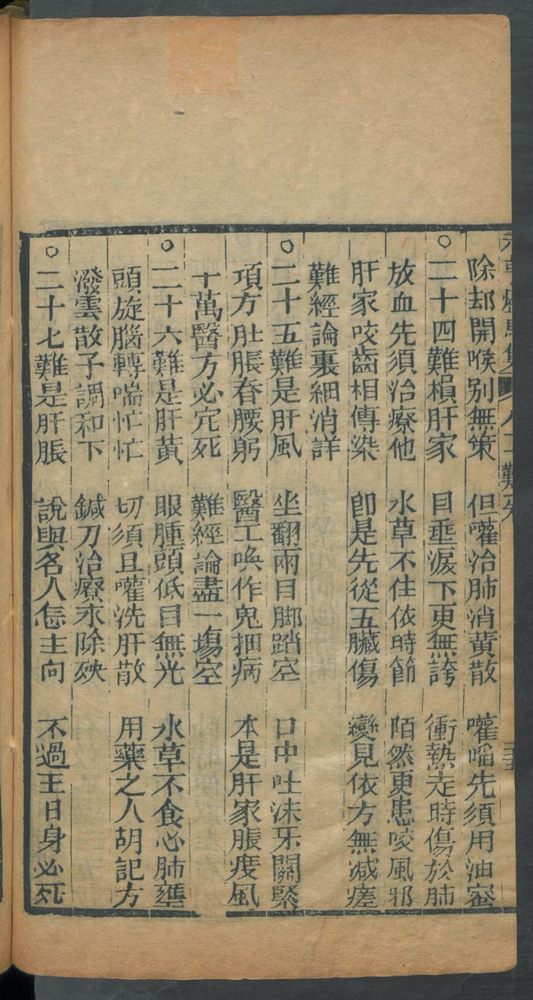 除却開喉别無策 但嚾治肺消黄散 嚾啗先須用油蜜
○二十四難槓肝家 目垂淚下更無誇 衝熱走時傷於肺
放血先須治療他 水草不住依時節 陌然更患唆風邪
肝家咬齒相傳染 卽是先從五臟傷 變見依方無減瘥
難經論裏細消詳
○二十五難是肝風 坐翻兩目脚踏空 口中吐沫牙關緊
項方肚脹脊腰躬 醫工喚作鬼捆病 本是肝家脹疫風
千萬醫方必宂死 難經論盡一塲空
○二十六難是肝黄 眼腫頭低目無光 水草不食心肺壅
頭旋腦轉喘忙忙 切須且嚾洗肝散 用藥之人胡記方
潑雲散子調和下 鍼刀治療永除殃
○二十七難是肝脹 說與名人怎主向 不過王日身必死